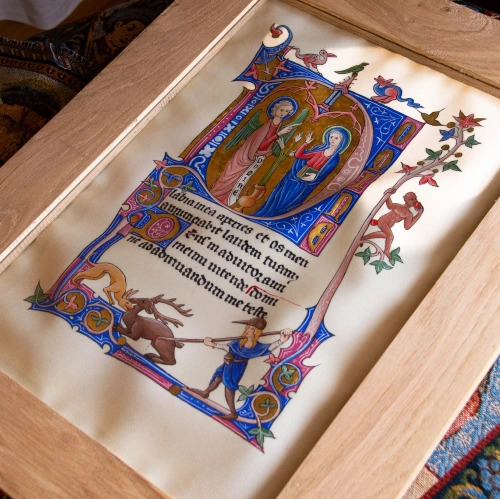 labia mea aperies et os meu
annunciabit laudem tuam
in adiutorium
meum intende. Domi
ne ad adiuvandum me festi